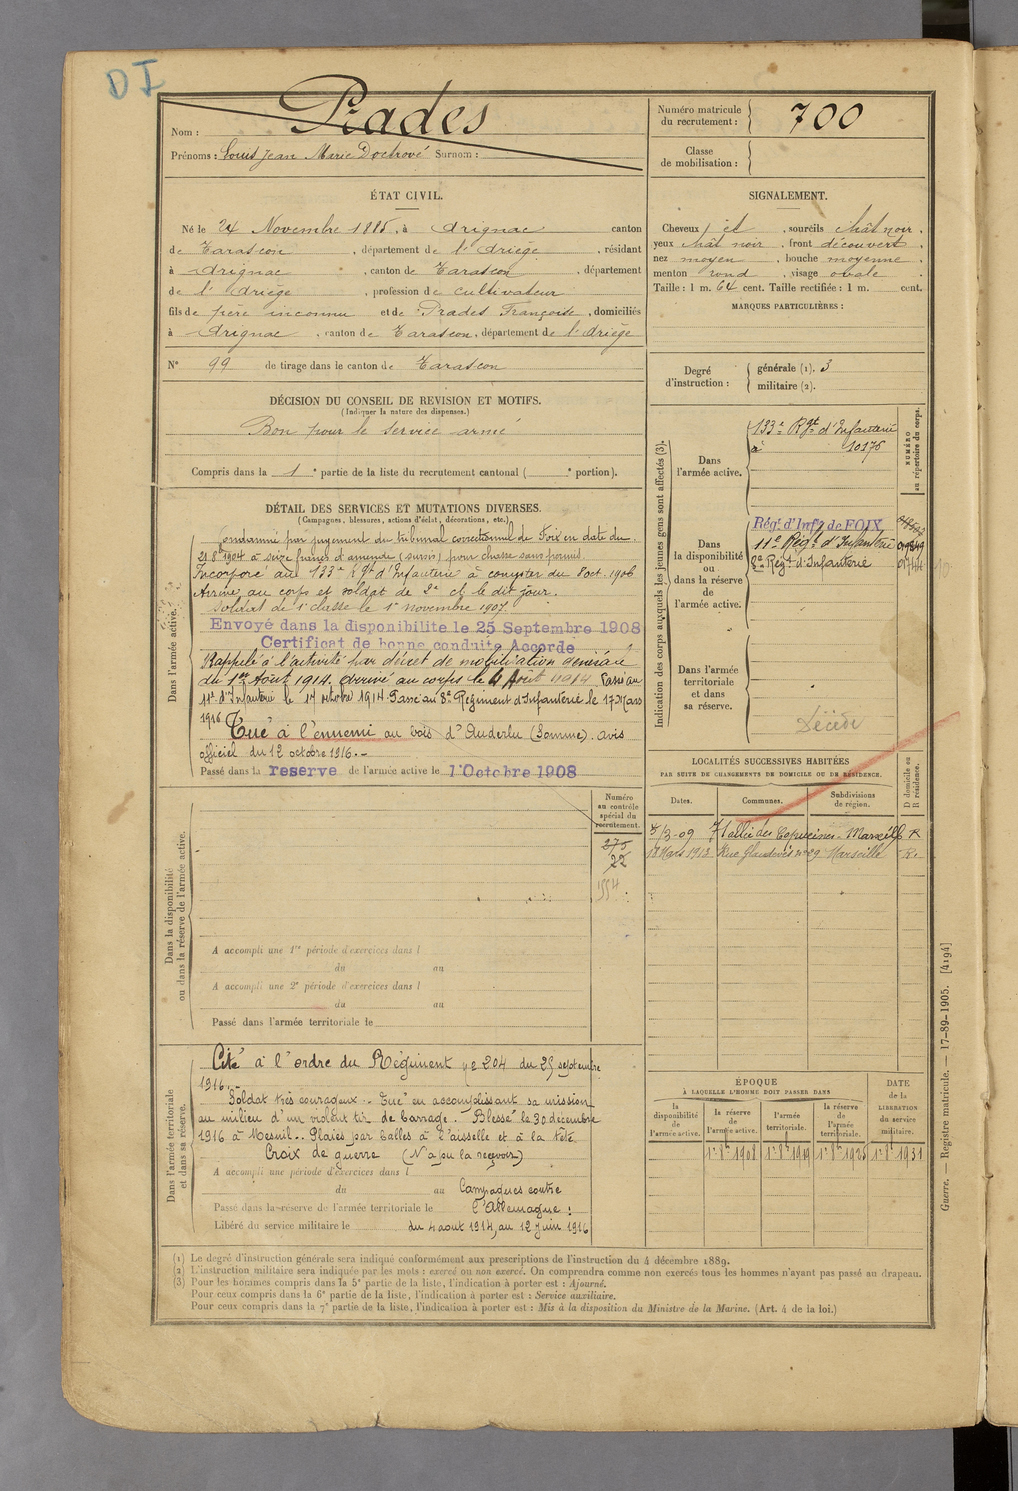 DI
Nom : Prades
Prénoms : Louis Jean Marie Doctrové Surnom :
Numéro matricule du recrutement : 700
Classe de mobilisation :
ÉTAT CIVIL.
Né le 24 Novembre 1885, à Arignac canton
de Tarascon, département de l'Ariège, résidant
à Arignac, canton de Tarascon, département
de l'Ariège, profession de cultivateur
fils de père inconnu et de Prades Françoise, domiciliés
à Arignac, canton de Tarascon, département de l'Ariège
N° 99 de tirage dans le canton de Tarascon
SIGNALEMENT.
Cheveux et, sourcils chât noir.
yeux chât noir, front découvert,
nez moyen, bouche moyenne,
menton rond, visage ovale.
Taille : 1 m. 64 cent. Taille rectifiée : 1 m. cent.
MARQUES PARTICULIÈRES :
Degré d'instruction : générale (1). 3
militaire (2).
DÉCISION DU CONSEIL DE REVISION ET MOTIFS.
(Indiquer la nature des dispenses.)
Bon pour le service armé
Compris dans la 1e partie de la liste du recrutement cantonal ( e portion).
DÉTAIL DES SERVICES ET MUTATIONS DIVERSES.
(Campagnes, blessures, actions d'éclat, décorations, etc.)
Dans l'armée active.
Condamné par jugement du tribunal correctionnel de Foix en date du
21 8bre 1904 à seize francs d'amende (sursis) pour chasse sans permis.
Incorporé au 133e Rgt d'Infanterie à compter du 8 oct. 1906
Arrivé au corps et soldat de 2e cl. le dit jour.
Soldat de 1e classe le 1er novembre 1907.
Envoyé dans la disponibilite le 25 Septembre 1908
Certificat de bonne conduite Accorde
Rappelé à l'activité par décret de mobilisation générale
du 1er Août 1914. Arrivé au corps le 4 Août 1914 Passé au
11e d'Infanterie le 17 octobre 1914 Passé au 8e Régiment d'Infanterie le 17 Mars
1916 Tué à l'ennemi au bois d'Anderlu (Somme). avis
officiel du 12 octobre 1916.-
Passé dans la reserve de l'armée active le 1 Octobre 1908
Indication des corps auxquels les jeunes gens sont affectés (3).
NUMÉRO au répertoire du corps.
Dans l'armée active.
133e Rgt d'Infanterie
à 10176
Dans la disponibilité ou dans la réserve de l'armée active.
Rég. d'Infie de FOIX
11e Régt d'Infanterie
8e Régt d'Infanterie
Dans l'armée territoriale et dans sa réserve.
Décédé
LOCALITÉS SUCCESSIVES HABITÉES
PAR SUITE DE CHANGEMENTS DE DOMICILE OU DE RÉSIDENCE.
Dates. Communes. Subdivisions de région. D domicile ou R résidence.
7 allée des Capucines. Marseille R
18 Mars 1913 Rue Glandevès n° 29 Marseille R.
Dans la disponibilité ou dans la réserve de l'armée active.
Numéro au contrôle spécial du recrutement.
275
22
A accompli une 1re période d'exercices dans l
du au
A accompli une 2e période d'exercices dans l
du au
Passé dans l'armée territoriale le
Dans l'armée territoriale et dans sa réserve.
Cité à l'ordre du Régiment n° 204 du 25 septembre
1916.-
Soldat très courageux - Tué en accomplissant sa mission
au milieu d'un violent tir de barrage. Blessé le 30 décembre
1916 à Mesnil.. Plaies par balles à l'aisselle et à la tête.
Croix de guerre (N'a pu la recevoir)
A accompli une période d'exercices dans l
du au Campagnes contre
Passé dans la réserve de l'armée territoriale le l'Allemagne :
Libéré du service militaire le du 4 aout 1914, au 12 juin 1916
ÉPOQUE
À LAQUELLE L'HOMME DOIT PASSER DANS
DATE de la LIBÉRATION du service militaire.
la disponibilité de l'armée active. la réserve de l'armée active. l'armée territoriale. la réserve de l'armée territoriale.
1r 8bre 1908 1r 8bre 1919 1r 8bre 1925 1r 8bre 1931
Guerre. — Registre matricule. — 17-89-1905. [4194]
(1) Le degré d'instruction générale sera indiqué conformément aux prescriptions de l'instruction du 4 décembre 1889.
(2) L'instruction militaire sera indiquée par les mots : exercé ou non exercé. On comprendra comme non exercés tous les hommes n'ayant pas passé au drapeau.
(3) Pour les hommes compris dans la 5e partie de la liste, l'indication à porter est : Ajourné.
Pour ceux compris dans la 6e partie de la liste, l'indication à porter est : Service auxiliaire.
Pour ceux compris dans la 7e partie de la liste, l'indication à porter est : Mis à la disposition du Ministre de la Marine. (Art. 4 de la loi.)